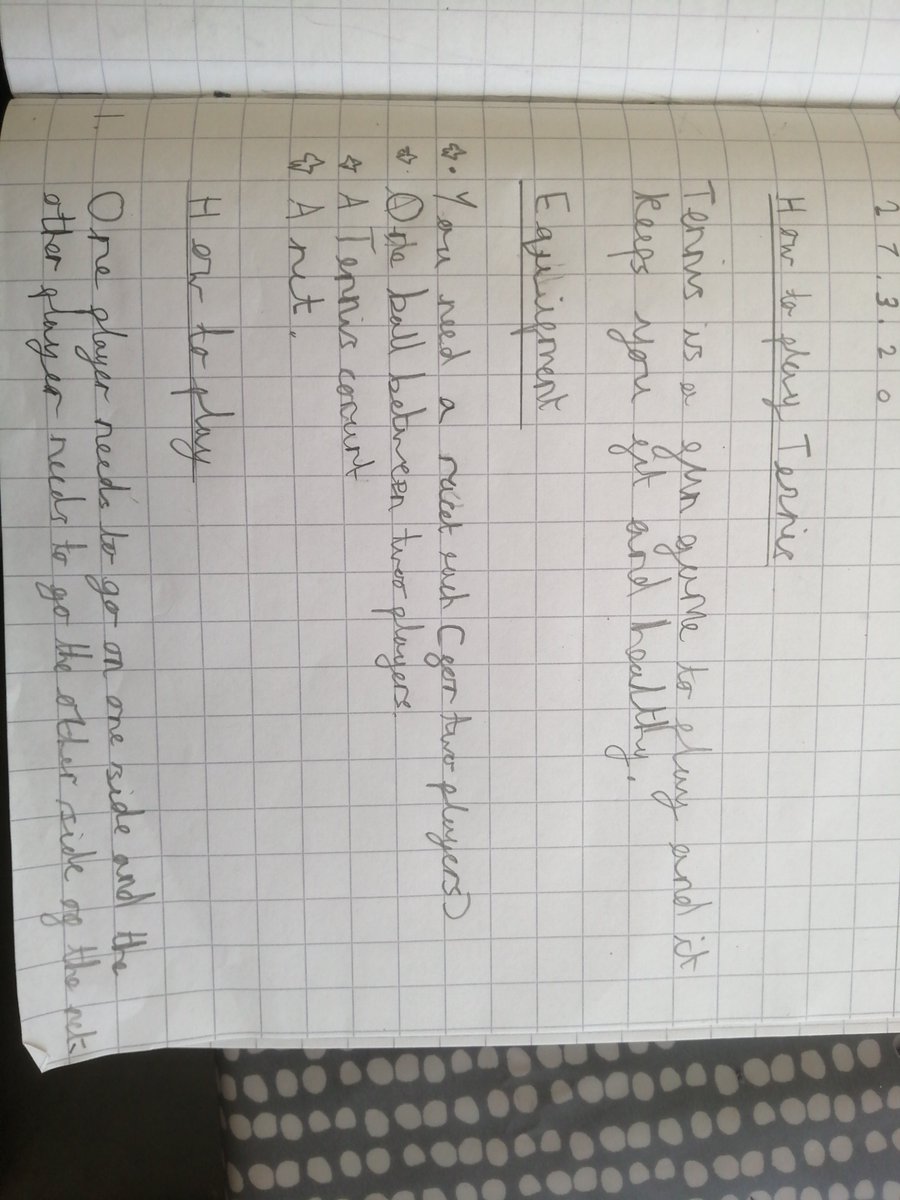 27.3.20
How to play Tennis
Tennis is a fun game to play and it
keeps you fit and healthy.
Equiipment
You need a racet each (for two players)
One ball between two players.
A Tennis court
A net.
How to play
1. One player needs to go on one side and the
other player needs to go the other side of the net.